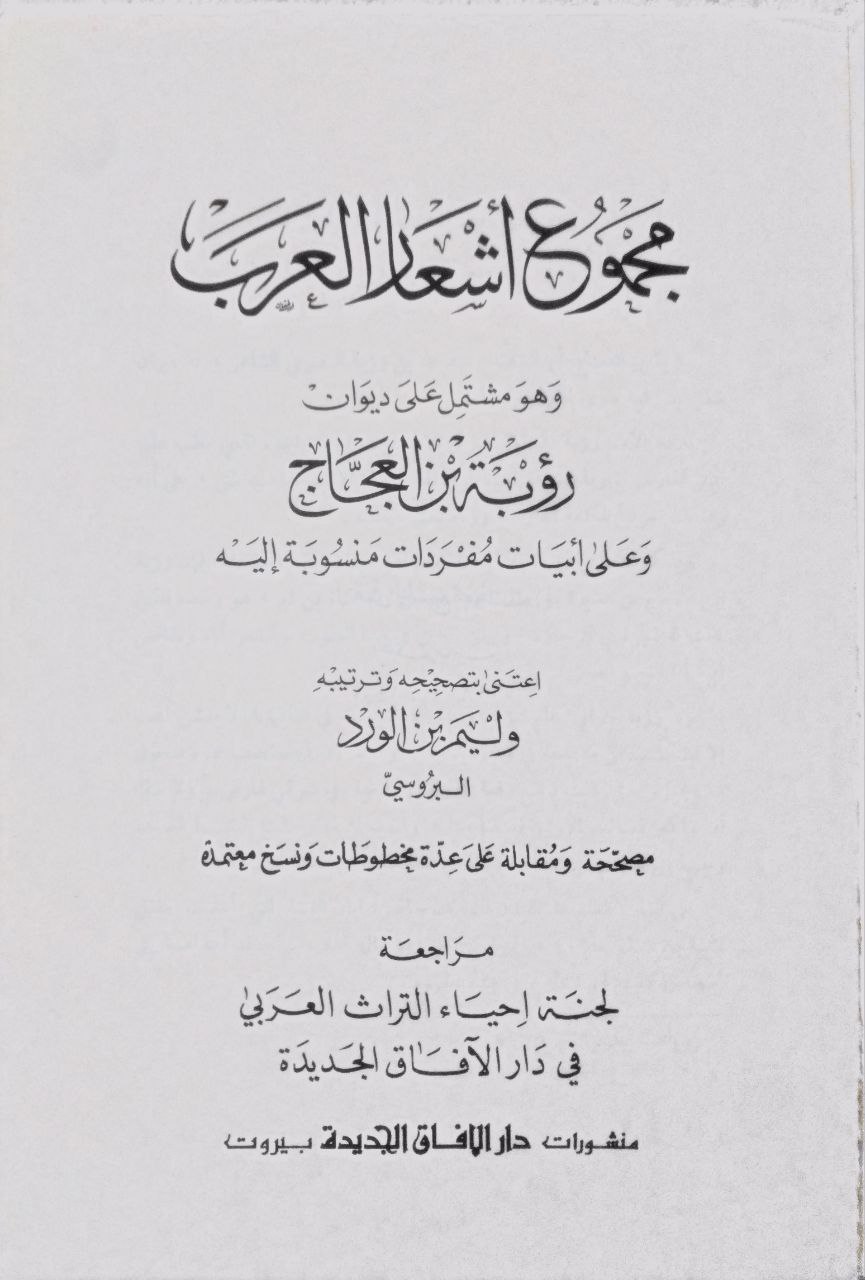 مجموع أشعار العرب
وَهوَ مشتَمِل عَلَى ديوَان
رؤبَة بْن العَجَّاج
وَعَلىٰ أبيَات مُفْرَدَات مَنسُوبَة إليَه
اِعتَنىٰ بتصحِيْحِه وَترتيبْهِ
وليَم بْن الورد
البرُوسيّ
مصحّحَة وَمُقابلة عَلىَ عِدّة مخطوطَات وَنسَخ معتمدة
مرَاجعَة
لجنَة اِحيَاء التراث العَرَبيٰ
في دَار الآفَاق الجَديدَة
منشورات دار الافاق الجديدة بيروت